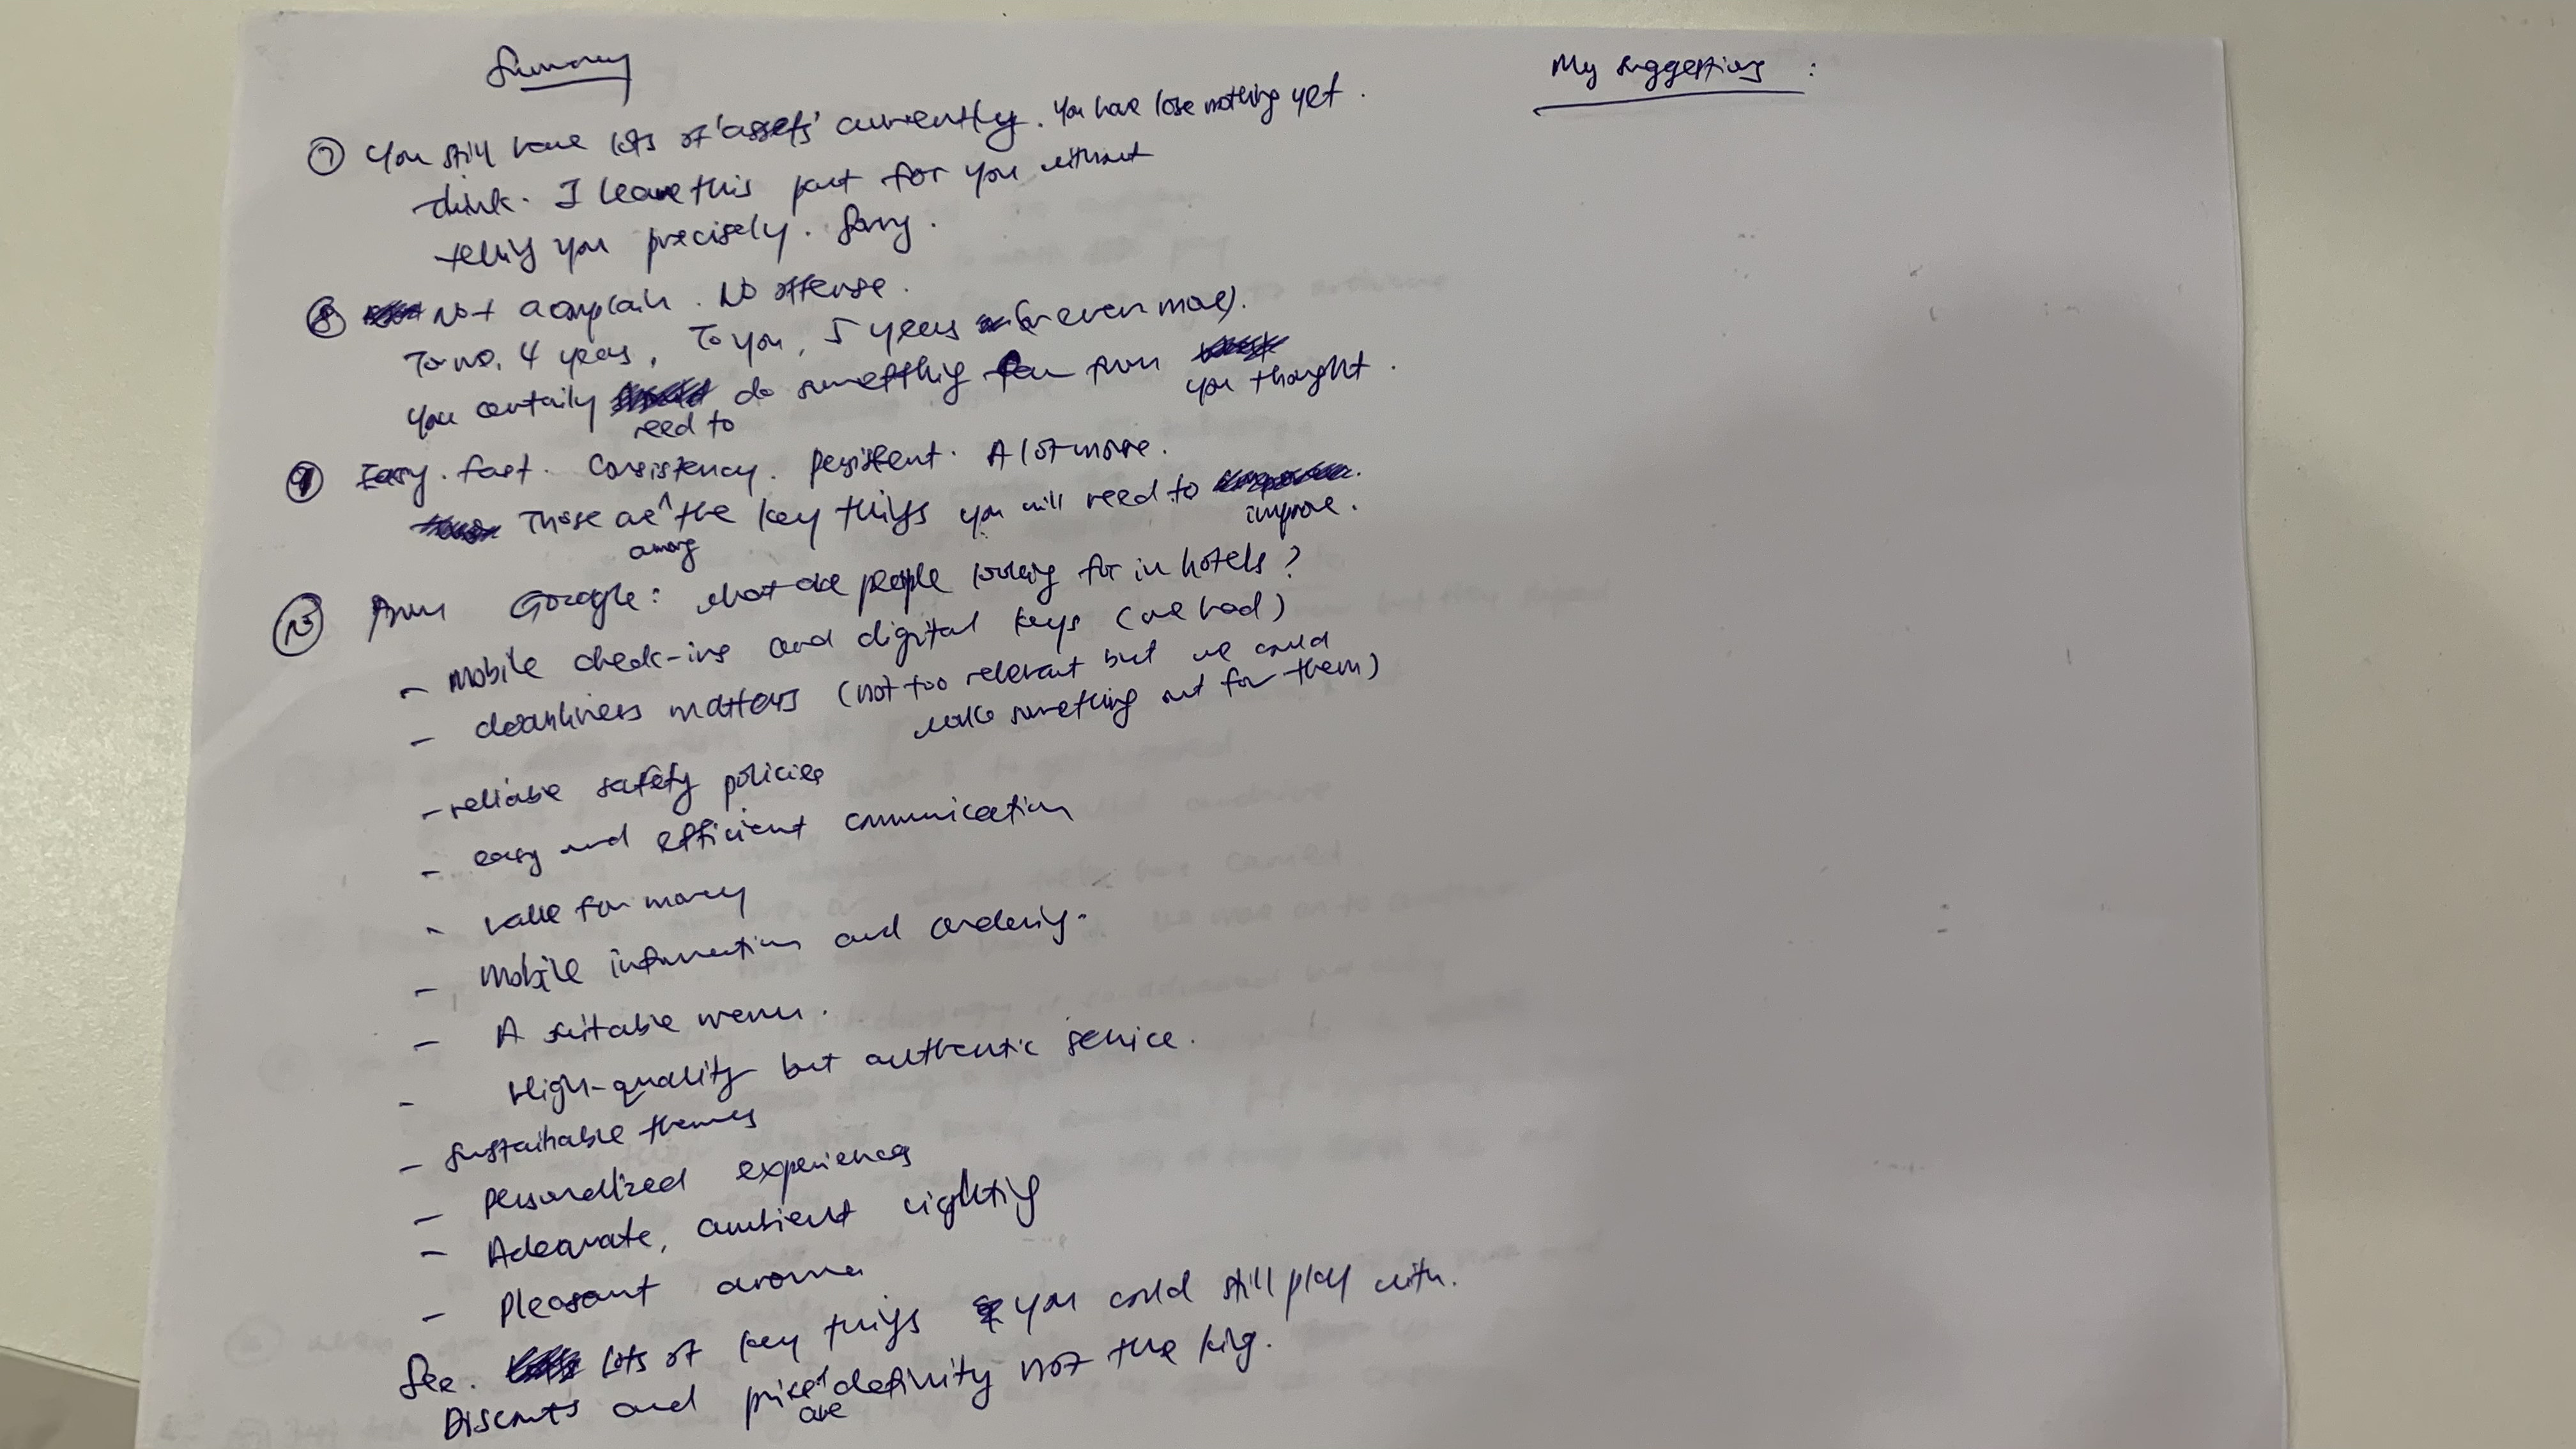 Summary
My suggestions :
⑦ You still have lots of 'assets' currently. You have lose nothing yet.
think. I leave this part for you without
telling you precisely. Sorry.
⑧ Not a complain. No offense.
To me, 4 years, To you, 5 years (or even more).
You certainly need to do something from you thought.
⑨ Easy. fast. Consistency. persistent. A lot more.
Those are among the key things you will need to improve.
⑩ From Google: what are people looking for in hotels?
- Mobile check-ins and digital keys (we had)
- cleanliness matters (not too relevant but we could
make something out for them)
- reliable safety policies
- easy and efficient communication
- value for money
- Mobile information and ordering.
- A suitable menu.
- High-quality but authentic service.
- Sustainable themes
- personalized experiences
- Adequate, ambient lighting
- Pleasant aroma
See. lots of key things you could still play with.
Discounts and price are definitly not the king.